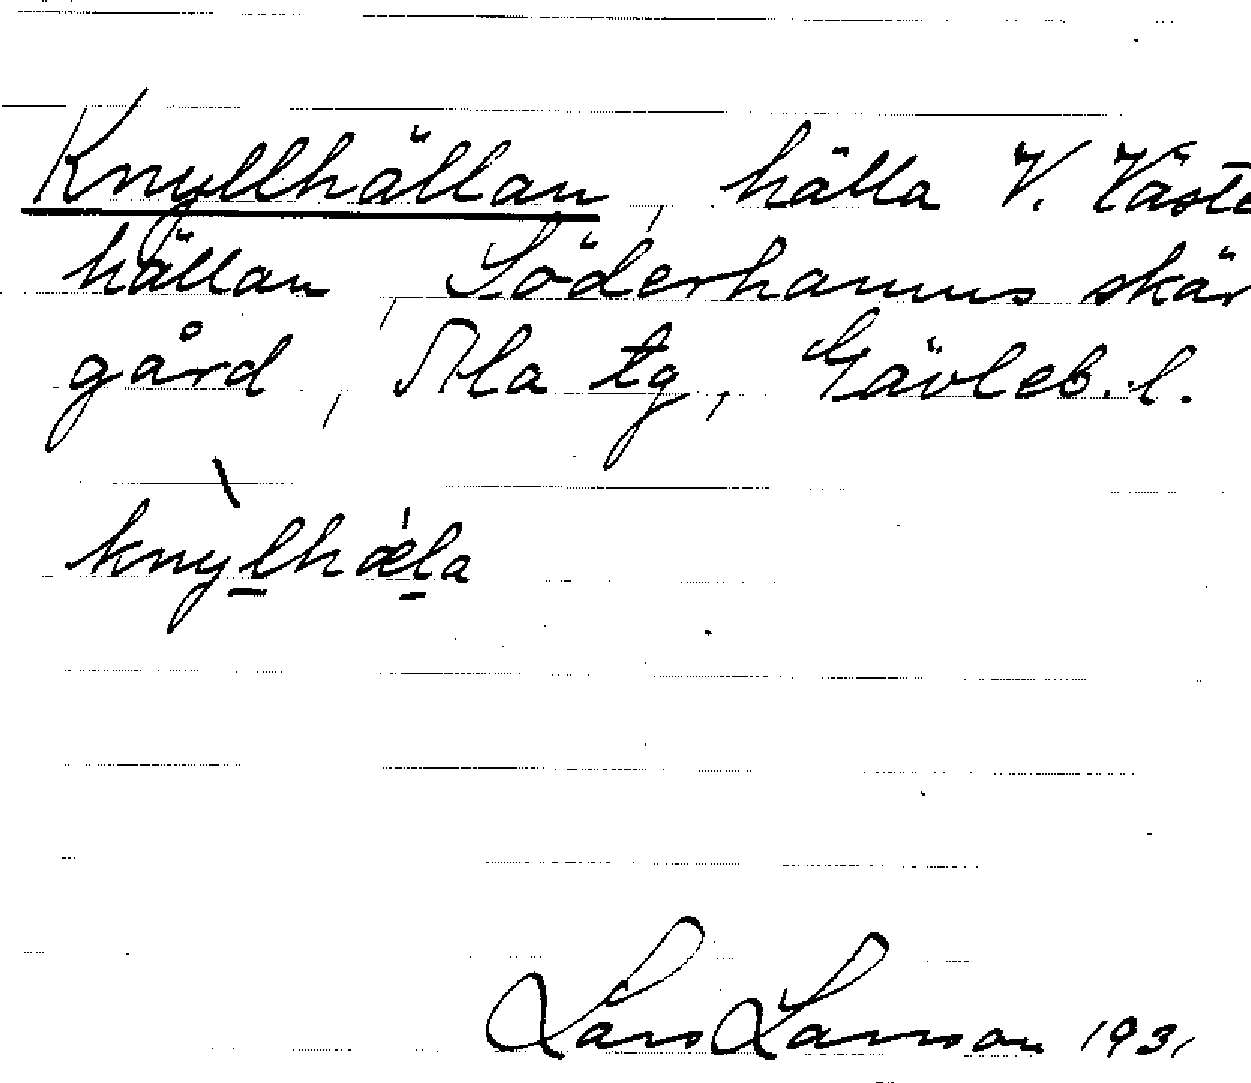 Knyllhällan, hälla V. Väste
hällan, Söderhamns skär
gård, Ala tg, Gävleb. l.
knỳlhǽla
Lars Larsson 1931